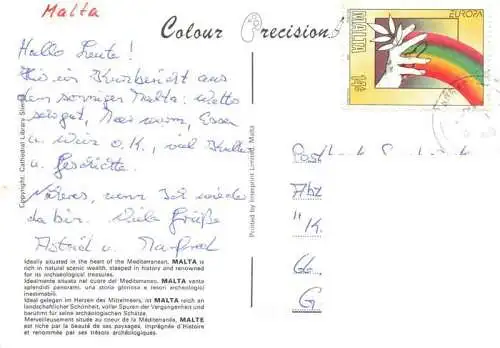 Malta
Colour Precision
EUROPA
MALTA
14c
Hallo Leute!
Hier ein Kurzbericht aus
dem sonnigen Malta: Wetter
sonnig, Meer warm, Essen
u. Wein O.K., viel Kultur
u. Geschichte.
Näheres, wenn ich wieder
da bin. Viele Grüße
Astrid u. Manfred
Copyright: Cathedral Library
Printed by Interprint Limited, Malta
Abt
"K.
66.
G
Ideally situated in the heart of the Mediterranean, MALTA is
rich in natural scenic wealth, steeped in history and renowned
for its archaeological treasures.
Idealmente situata nel cuore del Mediterraneo, MALTA vanta
splendidi panorami, una storia gloriosa e tesori archeologici
inestimabili.
Ideal gelegen im Herzen des Mittelmeers, ist MALTA reich an
landschaftlicher Schönheit, voller Spuren der Vergangenheit und
berühmt für seine archäologischen Schätze.
Merveilleusement située au coeur de la Méditerranée, MALTE
est riche par la beauté de ses paysages, imprégnée d'Histoire
et renommée par ses trésors archéologiques.